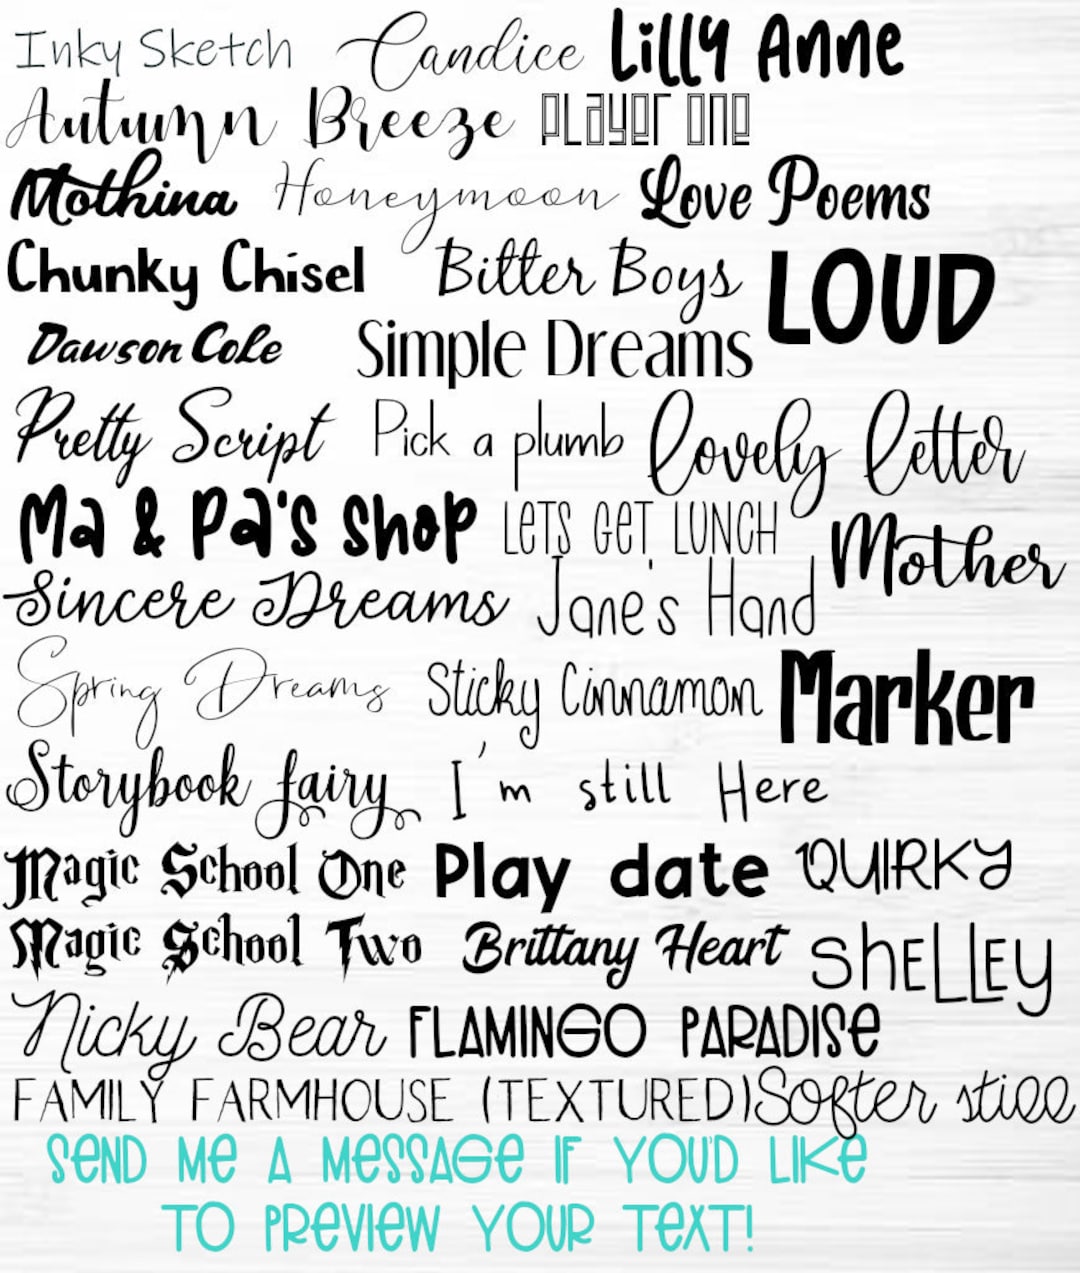 Inky Sketch Candice Lilly Anne
Autumn Breeze PLAYER ONE
Mothina Honeymoon Love Poems
Chunky Chisel Bitter Boys LOUD
Dawson Cole Simple Dreams
Pretty Script Pick a plumb Lovely Letter
Ma & Pa's Shop LETS GET LUNCH Mother
Sincere Dreams Jane's Hand
Spring Dreams Sticky Cinnamon Marker
Storybook fairy I'm still Here
Magic School One Play date QUIRKY
Magic School Two Brittany Heart ShELLEy
Nicky Bear FLAMINGO PARADISe
FAMILY FARMHOUSE (TEXTURED) Softer still
SeND Me A MeSSAGe IF YOU'D LIKe
TO PReVIeW YOUR TeXT!